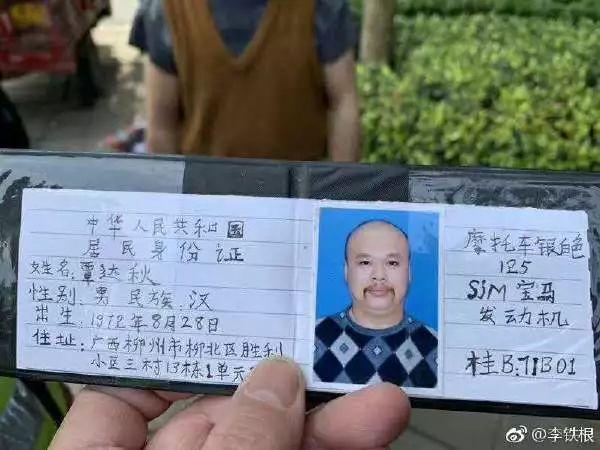 中华人民共和国
居民身份证
姓名:覃达秋
性别:男 民族:汉
出生:1972年8月28日
住址:广西柳州市柳北区胜利
小区三村13栋1单元
摩托车银色
125
SJM 宝马
发动机
桂B:71B01
@李铁根